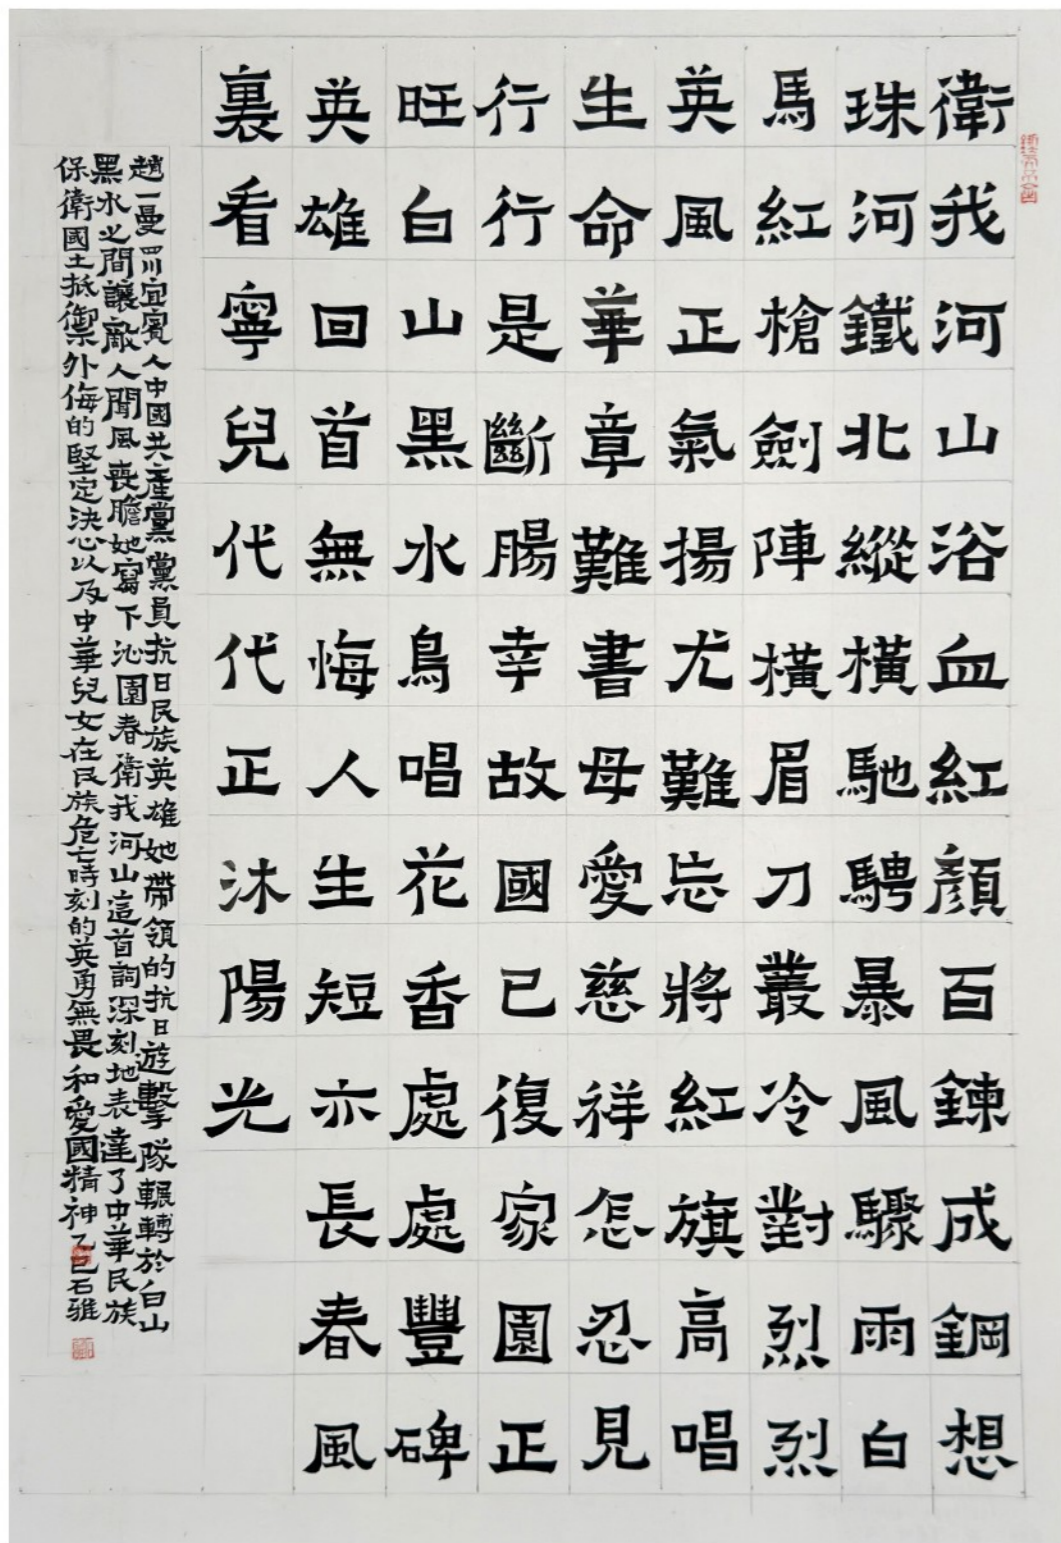 衛我河山浴血紅顏百鍊成鋼想
珠河鐵北縱橫馳騁暴風驟雨白
馬紅槍劍陣橫眉刀叢冷對烈烈
英風正氣揚尤難忘將紅旗高唱
生命華章難書母愛慈祥怎忍見
行行是斷腸幸故國已復家園正
旺白山黑水鳥唱花香處處豐碑
英雄回首無悔人生短亦長春風
裏看寧兒代代正沐陽光
趙一曼四川宜賓人中國共產黨黨員抗日民族英雄她帶領的抗日遊擊隊輾轉於白山
黑水之間讓敵人聞風喪膽她寫下沁園春衛我河山這首詞深刻地表達了中華民族
保衛國土抵禦外侮的堅定決心以及中華兒女在民族危亡時刻的英勇無畏和愛國精神乙巳石雅